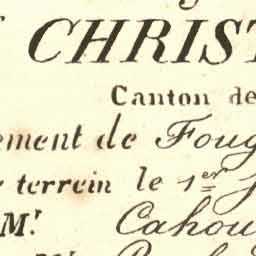 CHRIST
Canton de
ement de Foug
terrein le 1er
Mr. Cahou